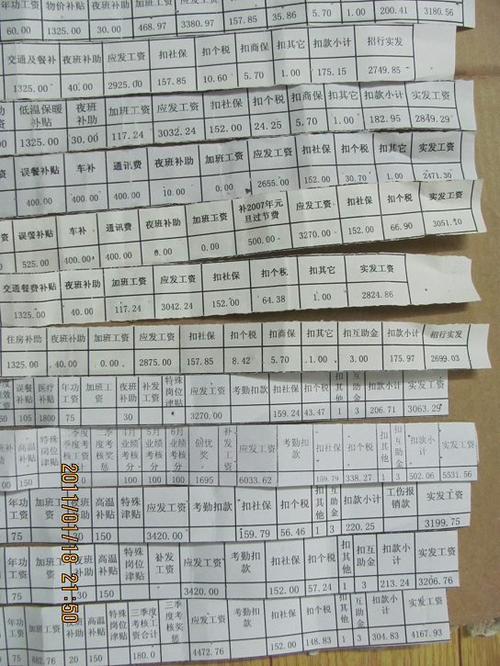 年功工资 物价补贴 夜班补助 应发工资 扣社保
60.00 1325.00 30.00 468.97 3380.97 157.85 35.86 5.70 1.00 200.41 3180.56
交通及餐补 夜班补助 应发工资 扣社保 扣个税 扣商保 扣其它 扣款小计 招行实发
1325.00 40.00 2925.00 157.85 10.60 5.70 1.00 175.15 2749.85
低温保暖补贴 夜班补助 加班工资 应发工资 扣社保 扣个税 扣商保 扣其它 扣款小计 实发工资
1325.00 30.00 117.24 3032.24 152.00 24.25 5.70 1.00 182.95 2849.29
误餐补贴 车补 通讯费 夜班补助 加班工资 应发工资 扣社保 扣个税 扣其它 实发工资
400.00 400.00 400.00 10.00 0.00 2655.00 152.00 30.70 1.00 2471.30
误餐补贴 车补 通讯费 夜班补助 加班工资 补2007年元旦过节费 应发工资 扣社保 扣个税 实发工资
525.00 400.00 400.00 0.00 0.00 500.00 3270.00 152.00 66.90 3051.10
交通餐费补贴 夜班补助 加班工资 应发工资 扣社保 扣个税 扣其它 实发工资
1325.00 40.00 117.24 3042.24 152.00 64.38 1.00 2824.86
住房补助 夜班补助 加班工资 应发工资 扣社保 扣个税 扣商保 扣其它 扣互助金 扣款小计 招行实发
1325.00 40.00 0.00 2875.00 157.85 8.42 5.70 1.00 3.00 175.97 2699.03
误餐补贴 医疗补贴 年功工资 加班工资 夜班补助 补发工资 特殊岗位津贴 应发工资 考勤扣款 扣社保 扣个税 扣其他 扣互助金 扣款小计 实发工资
150 105 1800 75 30 3270.00 159.24 43.47 1 3 206.71 3063.29
夜班补助 高温补贴 创优奖 补发工资 应发工资 考勤扣款 扣社保 扣个税 扣其他 扣互助金 扣款小计 实发工资
150 100 100 100 1695 6033.62 159.79 338.27 1 3 502.06 5531.56
年功工资 加班工资 夜班补助 高温补贴 特殊岗位津贴 应发工资 考勤扣款 扣社保 扣个税 扣其他 扣互助金 扣款小计 工伤报销款 实发工资
75 30 150 3420.00 159.79 56.46 1 3 220.25 3199.75
年功工资 加班工资 夜班补助 高温补贴 特殊岗位津贴 补发工资 应发工资 考勤扣款 扣社保 扣个税 扣其他 扣互助金 扣款小计 实发工资
75 30 150 3420.00 152.00 57.24 1 3 213.24 3206.76
年功工资 加班工资 夜班补助 高温补贴 特殊岗位津贴 三季度考核工资合计 三季度考核奖惩 应发工资 考勤扣款 扣社保 扣个税 扣其他 扣互助金 扣款小计 实发工资
75 882.76 20 150 180.0 4472.76 152.00 148.83 1 3 304.83 4167.93
2011/01/18 21:50